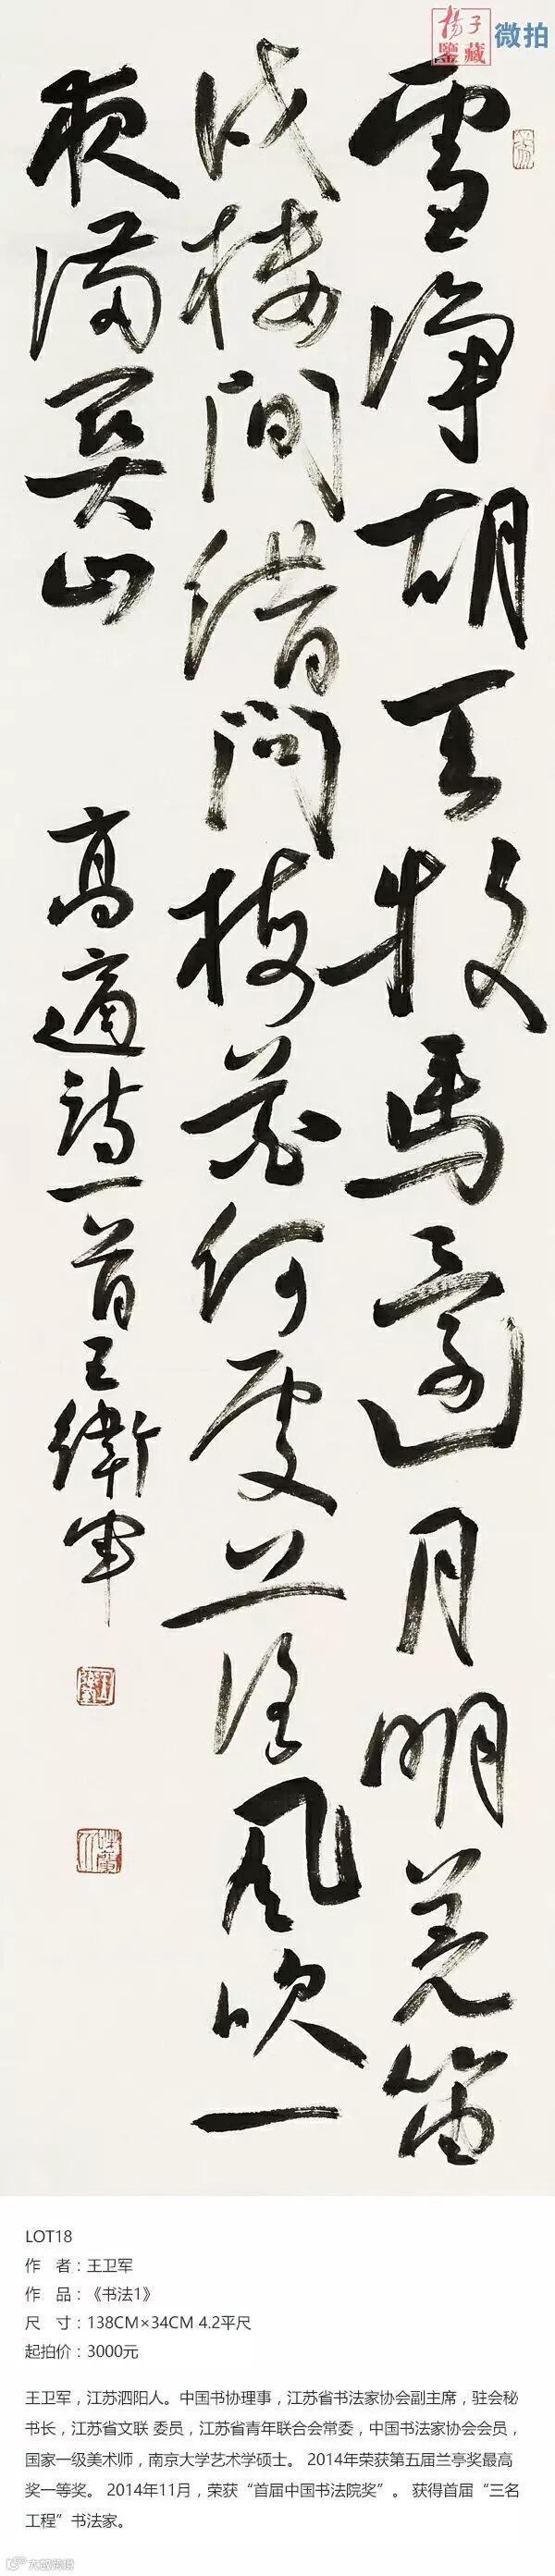 揚子
鑒藏
微拍
雪淨胡天牧馬還月明羌笛
戍樓間借問梅花何處落風吹一
夜滿關山
高適詩一首王衛軍
LOT18
作 者：王卫军
作 品：《书法1》
尺 寸：138CM×34CM 4.2平尺
起拍价：3000元
王卫军，江苏泗阳人。中国书协理事，江苏省书法家协会副主席，驻会秘
书长，江苏省文联 委员，江苏省青年联合会常委，中国书法家协会会员，
国家一级美术师，南京大学艺术学硕士。 2014年荣获第五届兰亭奖最高
奖一等奖。 2014年11月，荣获“首届中国书法院奖”。 获得首届“三名
工程”书法家。